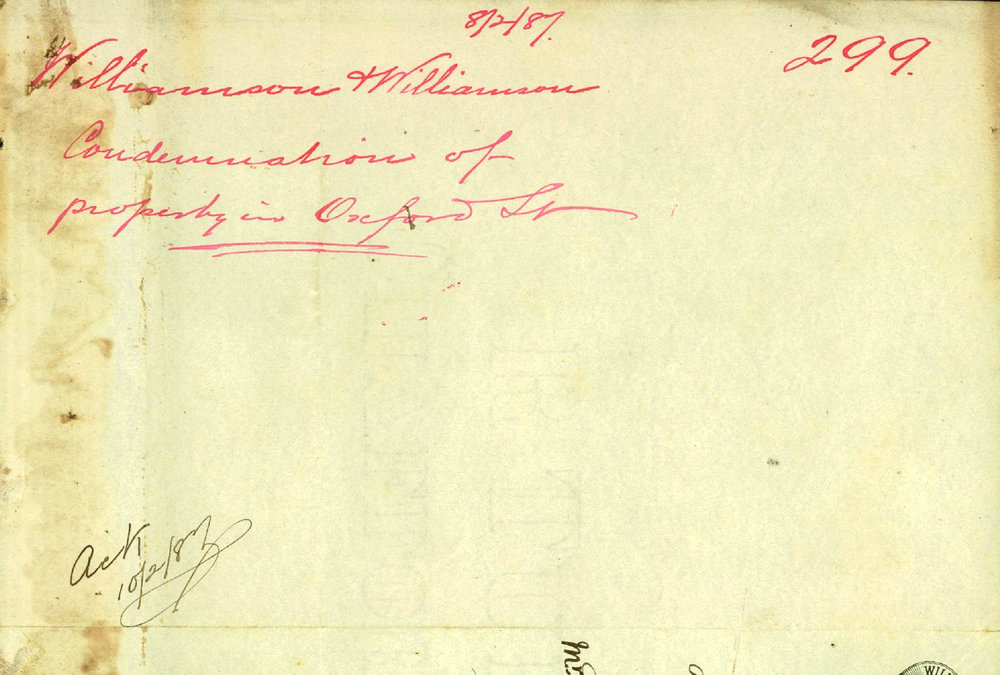 8/2/87.
299.
Williamson & Williamson
Condemnation of
property in Oxford St
Ack
10/2/87